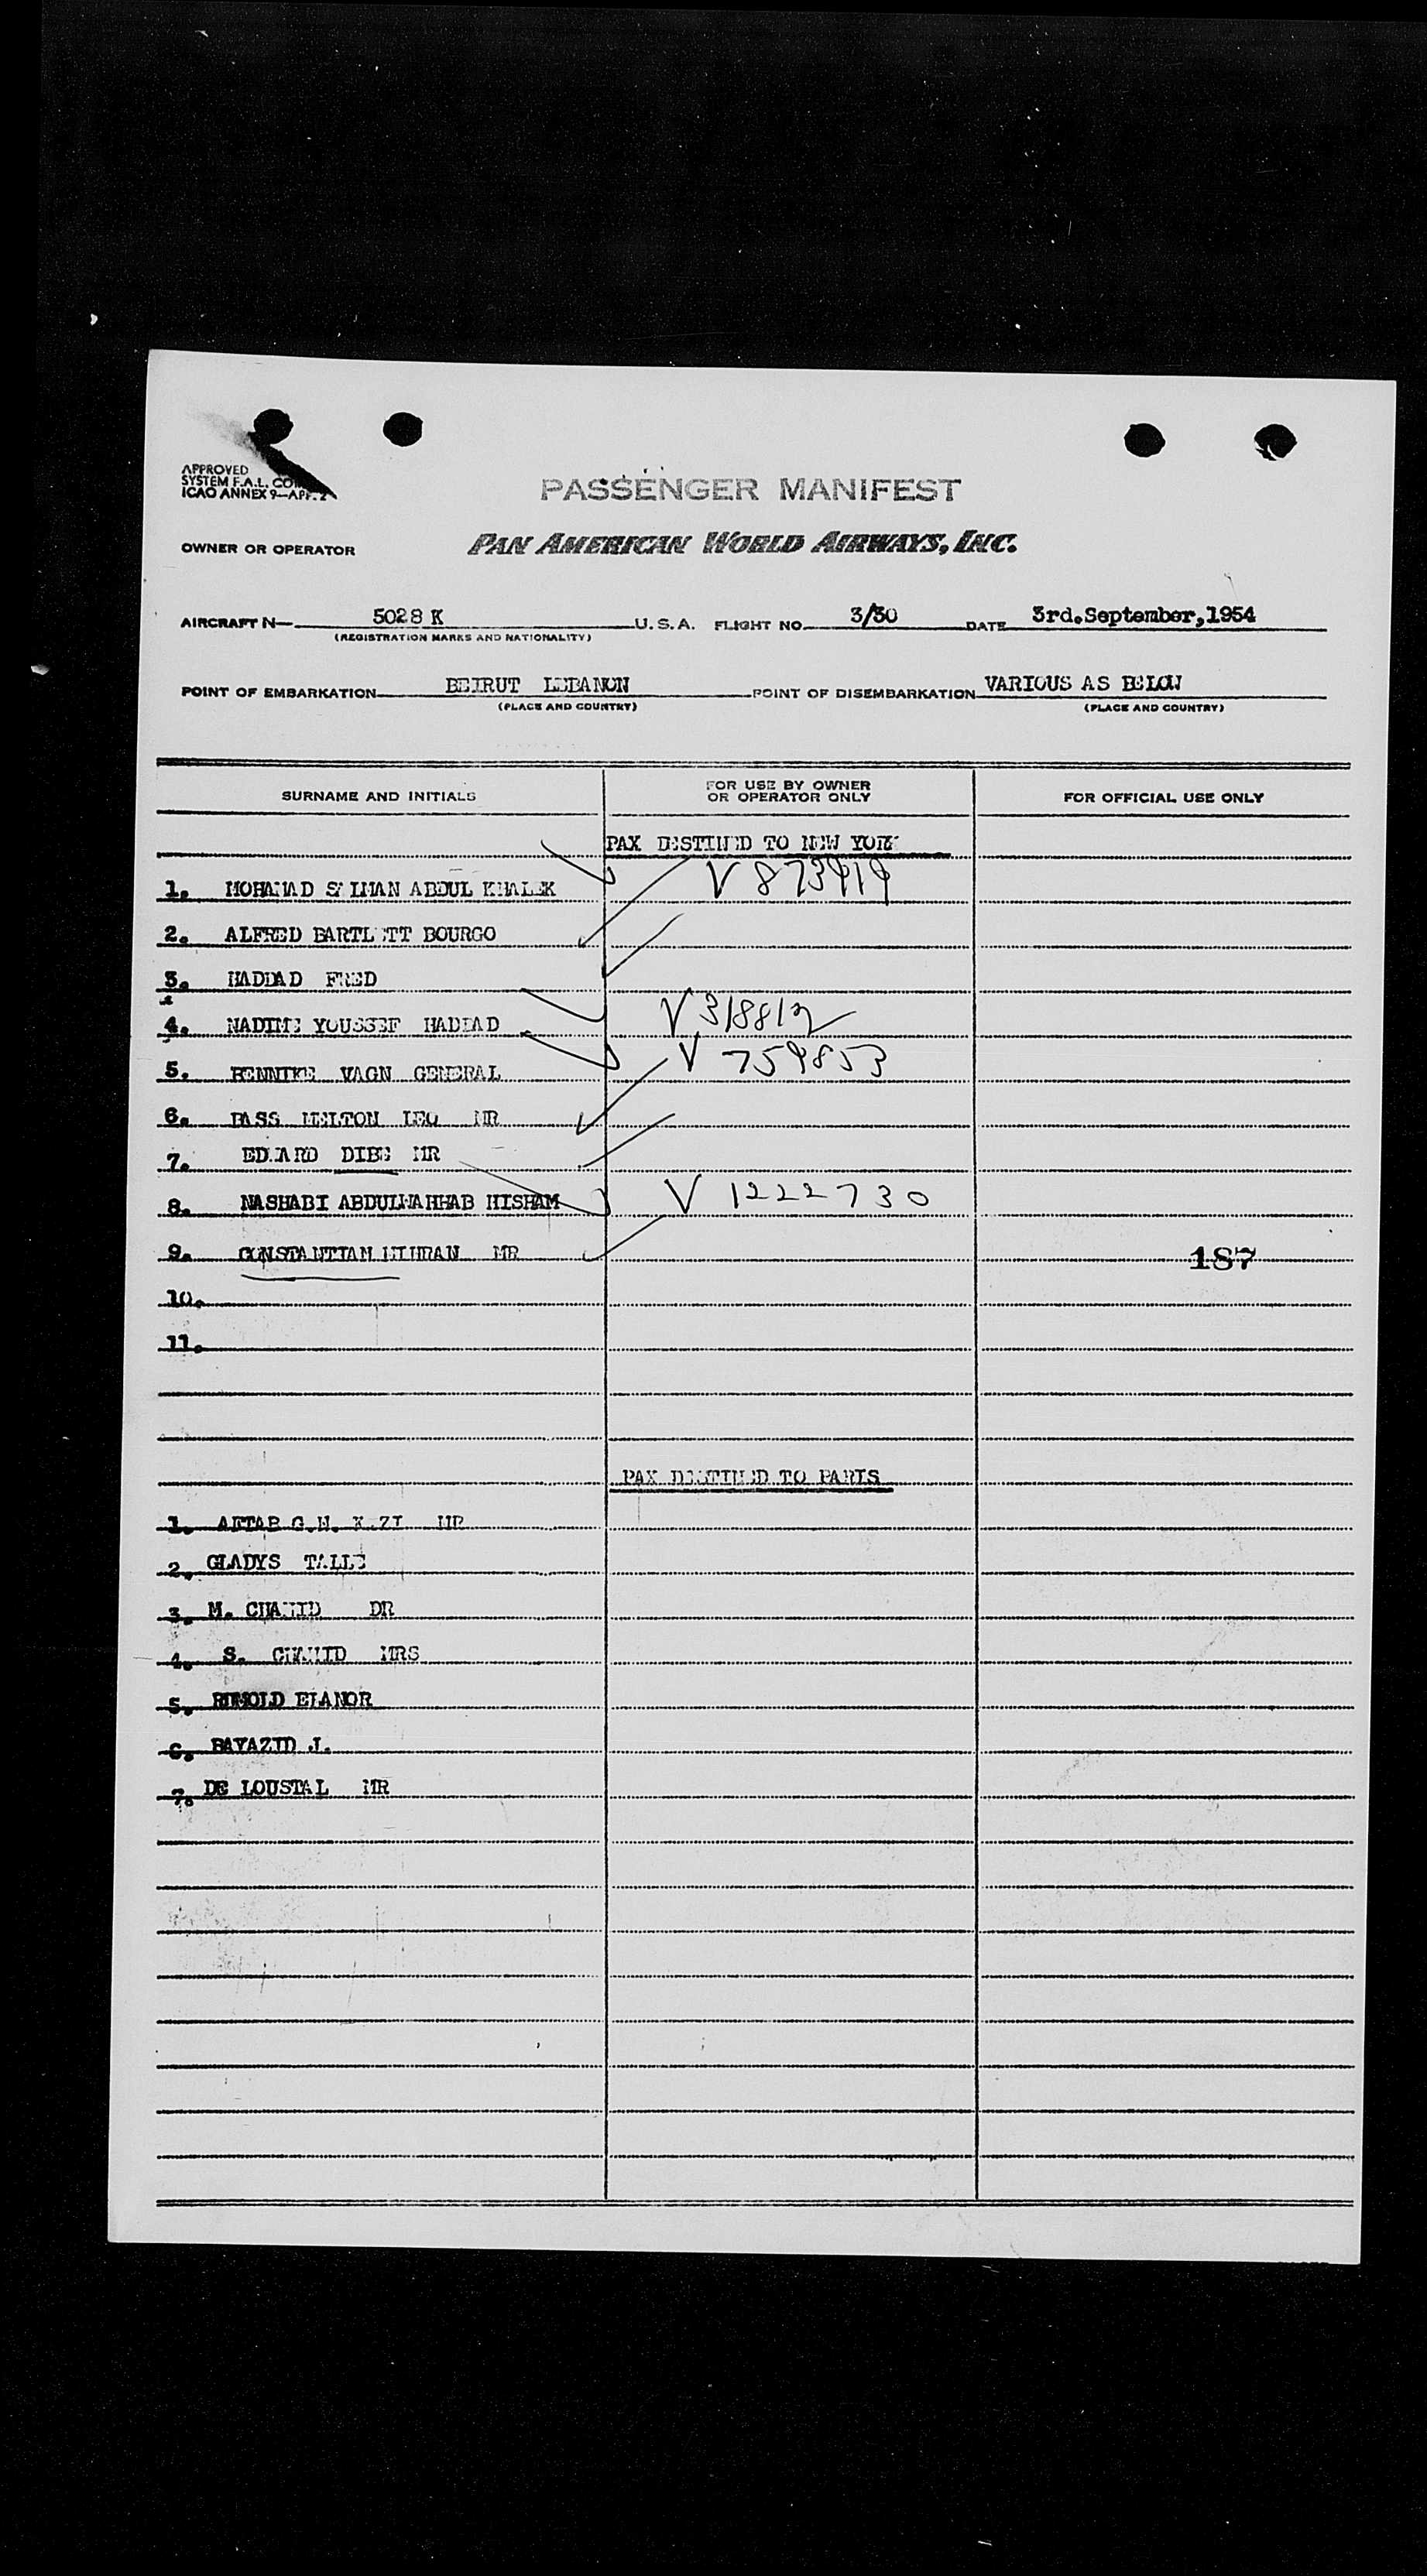 APPROVED
SYSTEM F.A.L.
ICAO ANNEX 9—APP. 2
PASSENGER MANIFEST
OWNER OR OPERATOR PAN AMERICAN WORLD AIRWAYS, INC.
AIRCRAFT N— 5028 K U.S.A. FLIGHT NO. 3/30 DATE 3rd.September,1954
(REGISTRATION MARKS AND NATIONALITY)
POINT OF EMBARKATION BEIRUT LEBANON POINT OF DISEMBARKATION VARIOUS AS BELOW
(PLACE AND COUNTRY) (PLACE AND COUNTRY)
SURNAME AND INITIALS FOR USE BY OWNER OR OPERATOR ONLY FOR OFFICIAL USE ONLY
PAX DESTINED TO NEW YORK
1. MOHAMAD ABDUL KHALEK V 873419
2. ALFRED BARTLETT BOURGO
3. HADDAD FRED
4. NADIME YOUSSEF HADDAD V 318812
5. BENNIKE VAGN GENERAL V 759853
6. BASS MELTON LEO MR
7. EDWARD DIBS MR
8. NASHABI ABDULWAHHAB HISHAM V 1222730
9. CONSTANTIAM MIHRAN MR 187
10.
11.
PAX DESTINED TO PARIS
1. AFTAB G.N. KAZI MR
2. GLADYS TALLE
3. M. CHAHID DR
4. S. CHAHID MRS
5. ELANOR
6. BAYAZID J.
7. DE LOUSTAL MR